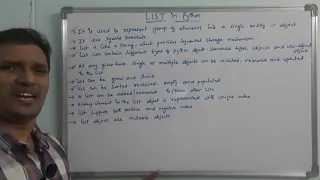 LIST in Python
→ It is used to represent group of elements into a single entity or object
→ It uses square brackets
→ List is like a string, which provides sequential storage mechanism.
→ List can contain different types of python objects: Standard types, objects and user-defined objects
→ At any given time, single or multiple objects can be inserted, removed and updated to the list.
→ List can be grown and shrunk
→ List can be sorted, reversed, empty and populated
→ A list can be added/removed to/from other list
→ Every element in the list object is represented with unique index
→ List supports both positive and negative index
→ List objects are mutable objects